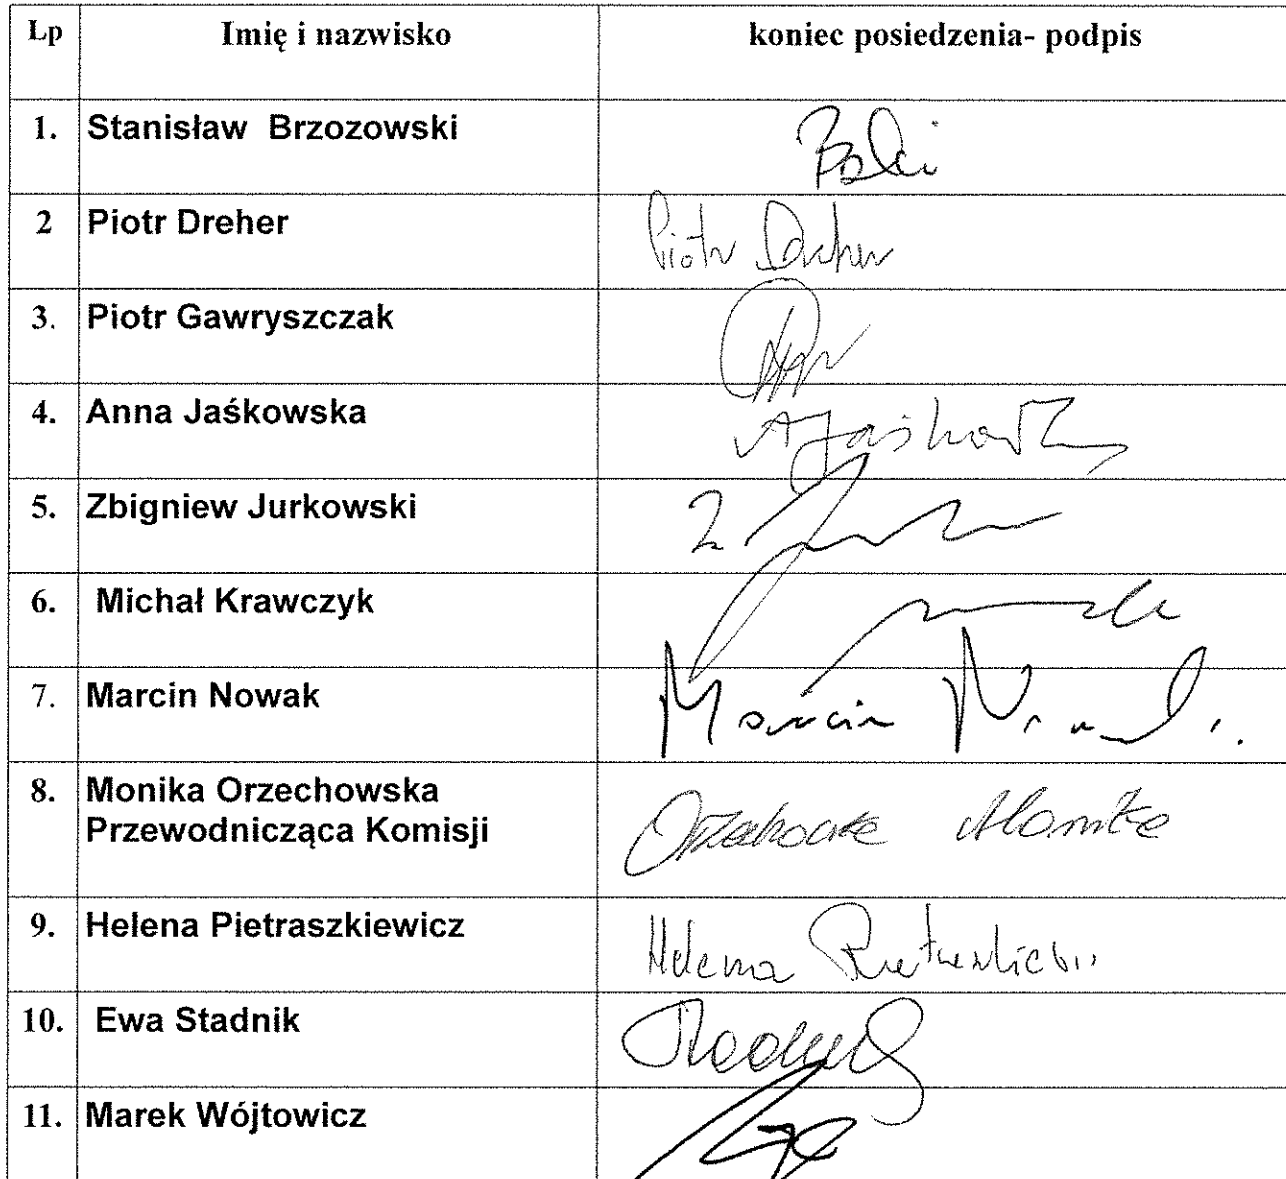 Lp Imię i nazwisko koniec posiedzenia- podpis
1. Stanisław Brzozowski
2 Piotr Dreher Piotr Dreher
3. Piotr Gawryszczak
4. Anna Jaśkowska AJaśkowska
5. Zbigniew Jurkowski
6. Michał Krawczyk
7. Marcin Nowak Marcin Nowak
8. Monika Orzechowska
Przewodnicząca Komisji Orzechowska Monika
9. Helena Pietraszkiewicz Helena Pietraszkiewicz
10. Ewa Stadnik
11. Marek Wójtowicz